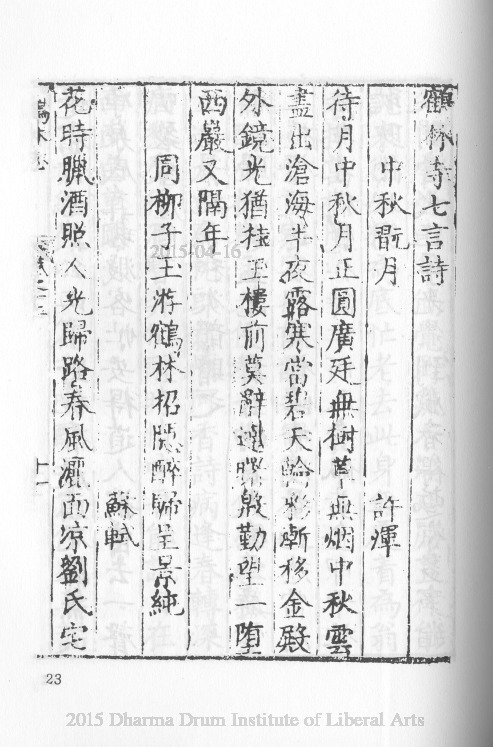 鶴林寺七言詩
中秋翫月 許渾
待月中秋月正圓廣廷無樹草無烟中秋雲
盡出滄海半夜露寒當碧天輪彩漸移金殿
外鏡光猶挂玉樓前莫辭達曙殷勤望一墮
西巖又隔年
同柳子玉游鶴林招隱醉歸呈景純
蘇軾
花時臘酒照人光歸路春風灑面凉劉氏宅
十一
23
2015-04-16
2015 Dharma Drum Institute of Liberal Arts